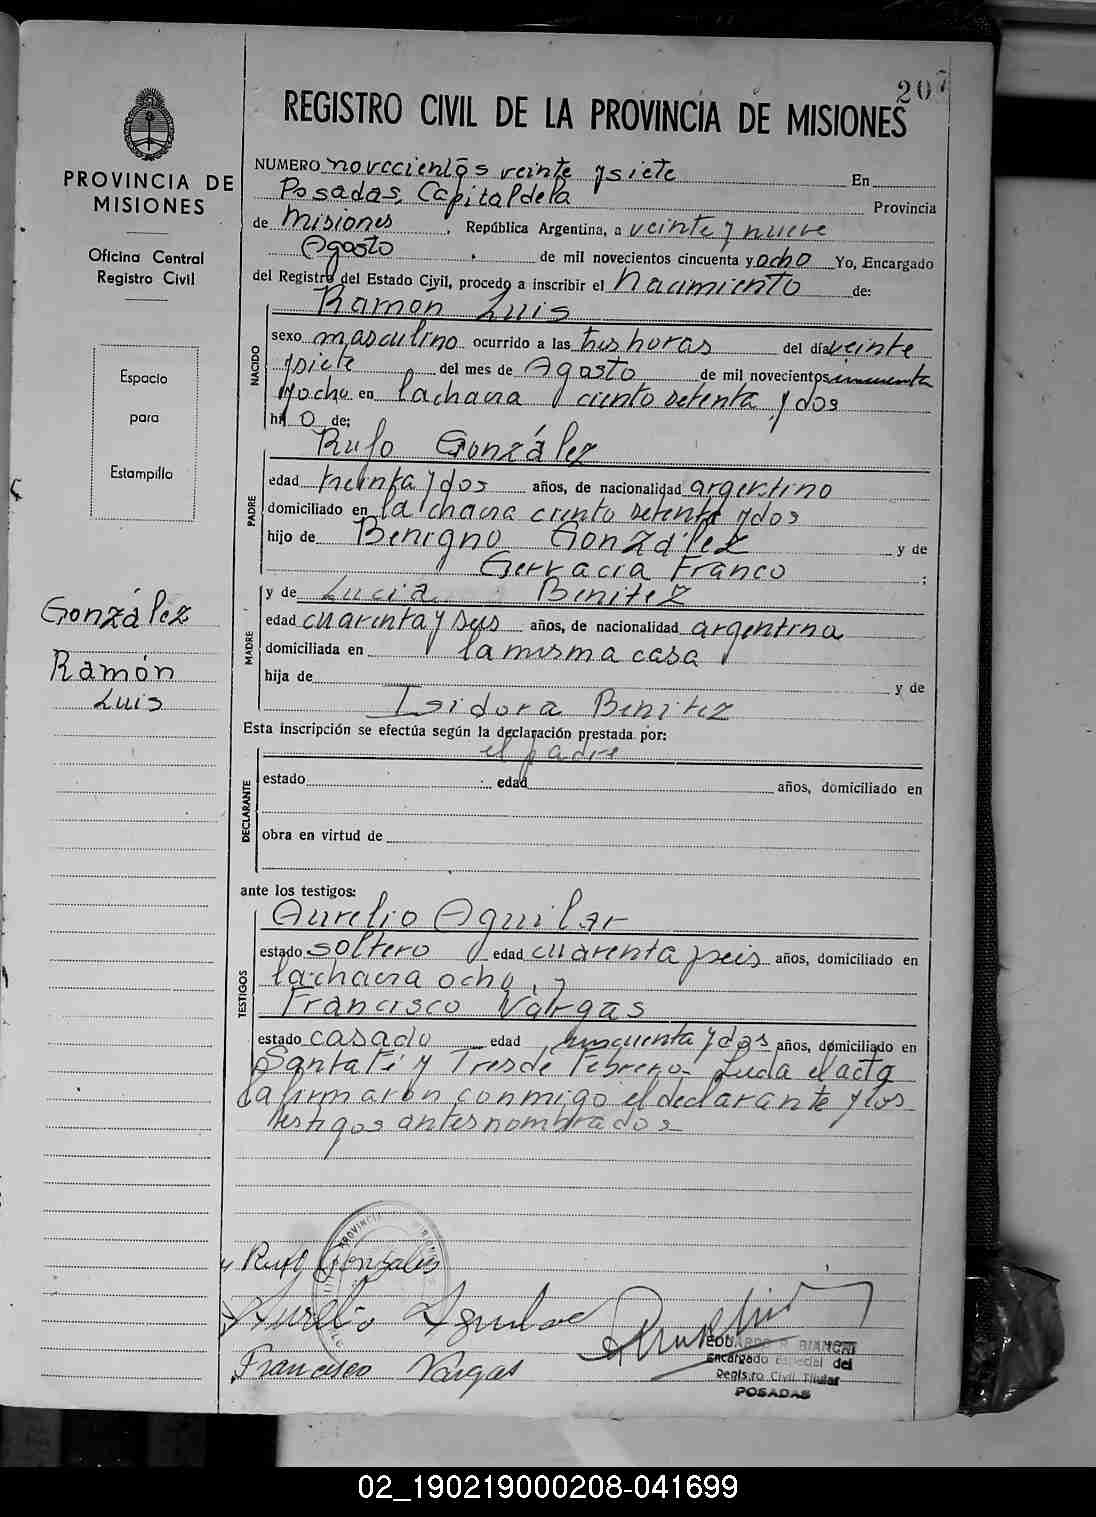 207
REGISTRO CIVIL DE LA PROVINCIA DE MISIONES
PROVINCIA DE
MISIONES
Oficina Central
Registro Civil
Espacio
para
Estampilla
González
Ramón
Luis
NUMERO novecientos veinte y siete En
Posadas, Capital de la Provincia
de Misiones, República Argentina, a veinte y nueve
Agosto de mil novecientos cincuenta y ocho Yo, Encargado
del Registro del Estado Civil, procedo a inscribir el Nacimiento de:
Ramon Luis
NACIDO
sexo masculino ocurrido a las tres horas del día veinte
y siete del mes de Agosto de mil novecientos cincuenta
y ocho en la chacra ciento setenta y dos
hijo de:
Rufo González
PADRE
edad treinta y dos años, de nacionalidad argentino
domiciliado en la chacra ciento setenta y dos
hijo de Benigno González y de
Gervacia Franco ;
MADRE
y de Lucia Benitez
edad cuarenta y seis años, de nacionalidad argentina
domiciliada en la misma casa
hija de y de
Isidora Benitez
Esta inscripción se efectúa según la declaración prestada por:
el padre
DECLARANTE
estado edad años, domiciliado en
obra en virtud de
ante los testigos:
Aurelio Aguilar
TESTIGOS
estado soltero edad cuarenta y seis años, domiciliado en
la chacra ocho, y
Francisco Vargas
estado casado edad cincuenta y dos años, domiciliado en
Santa Fé y Tres de Febrero. Leida el acta
la firmaron conmigo el declarante y los
testigos antes nombrados
PROVINCIA
Rufo Gonzales
Aurelio Aguilar
Francisco Vargas
EDUARDO R. BIANCHI
Encargado especial del
Registro Civil Titular
POSADAS
02_190219000208-041699